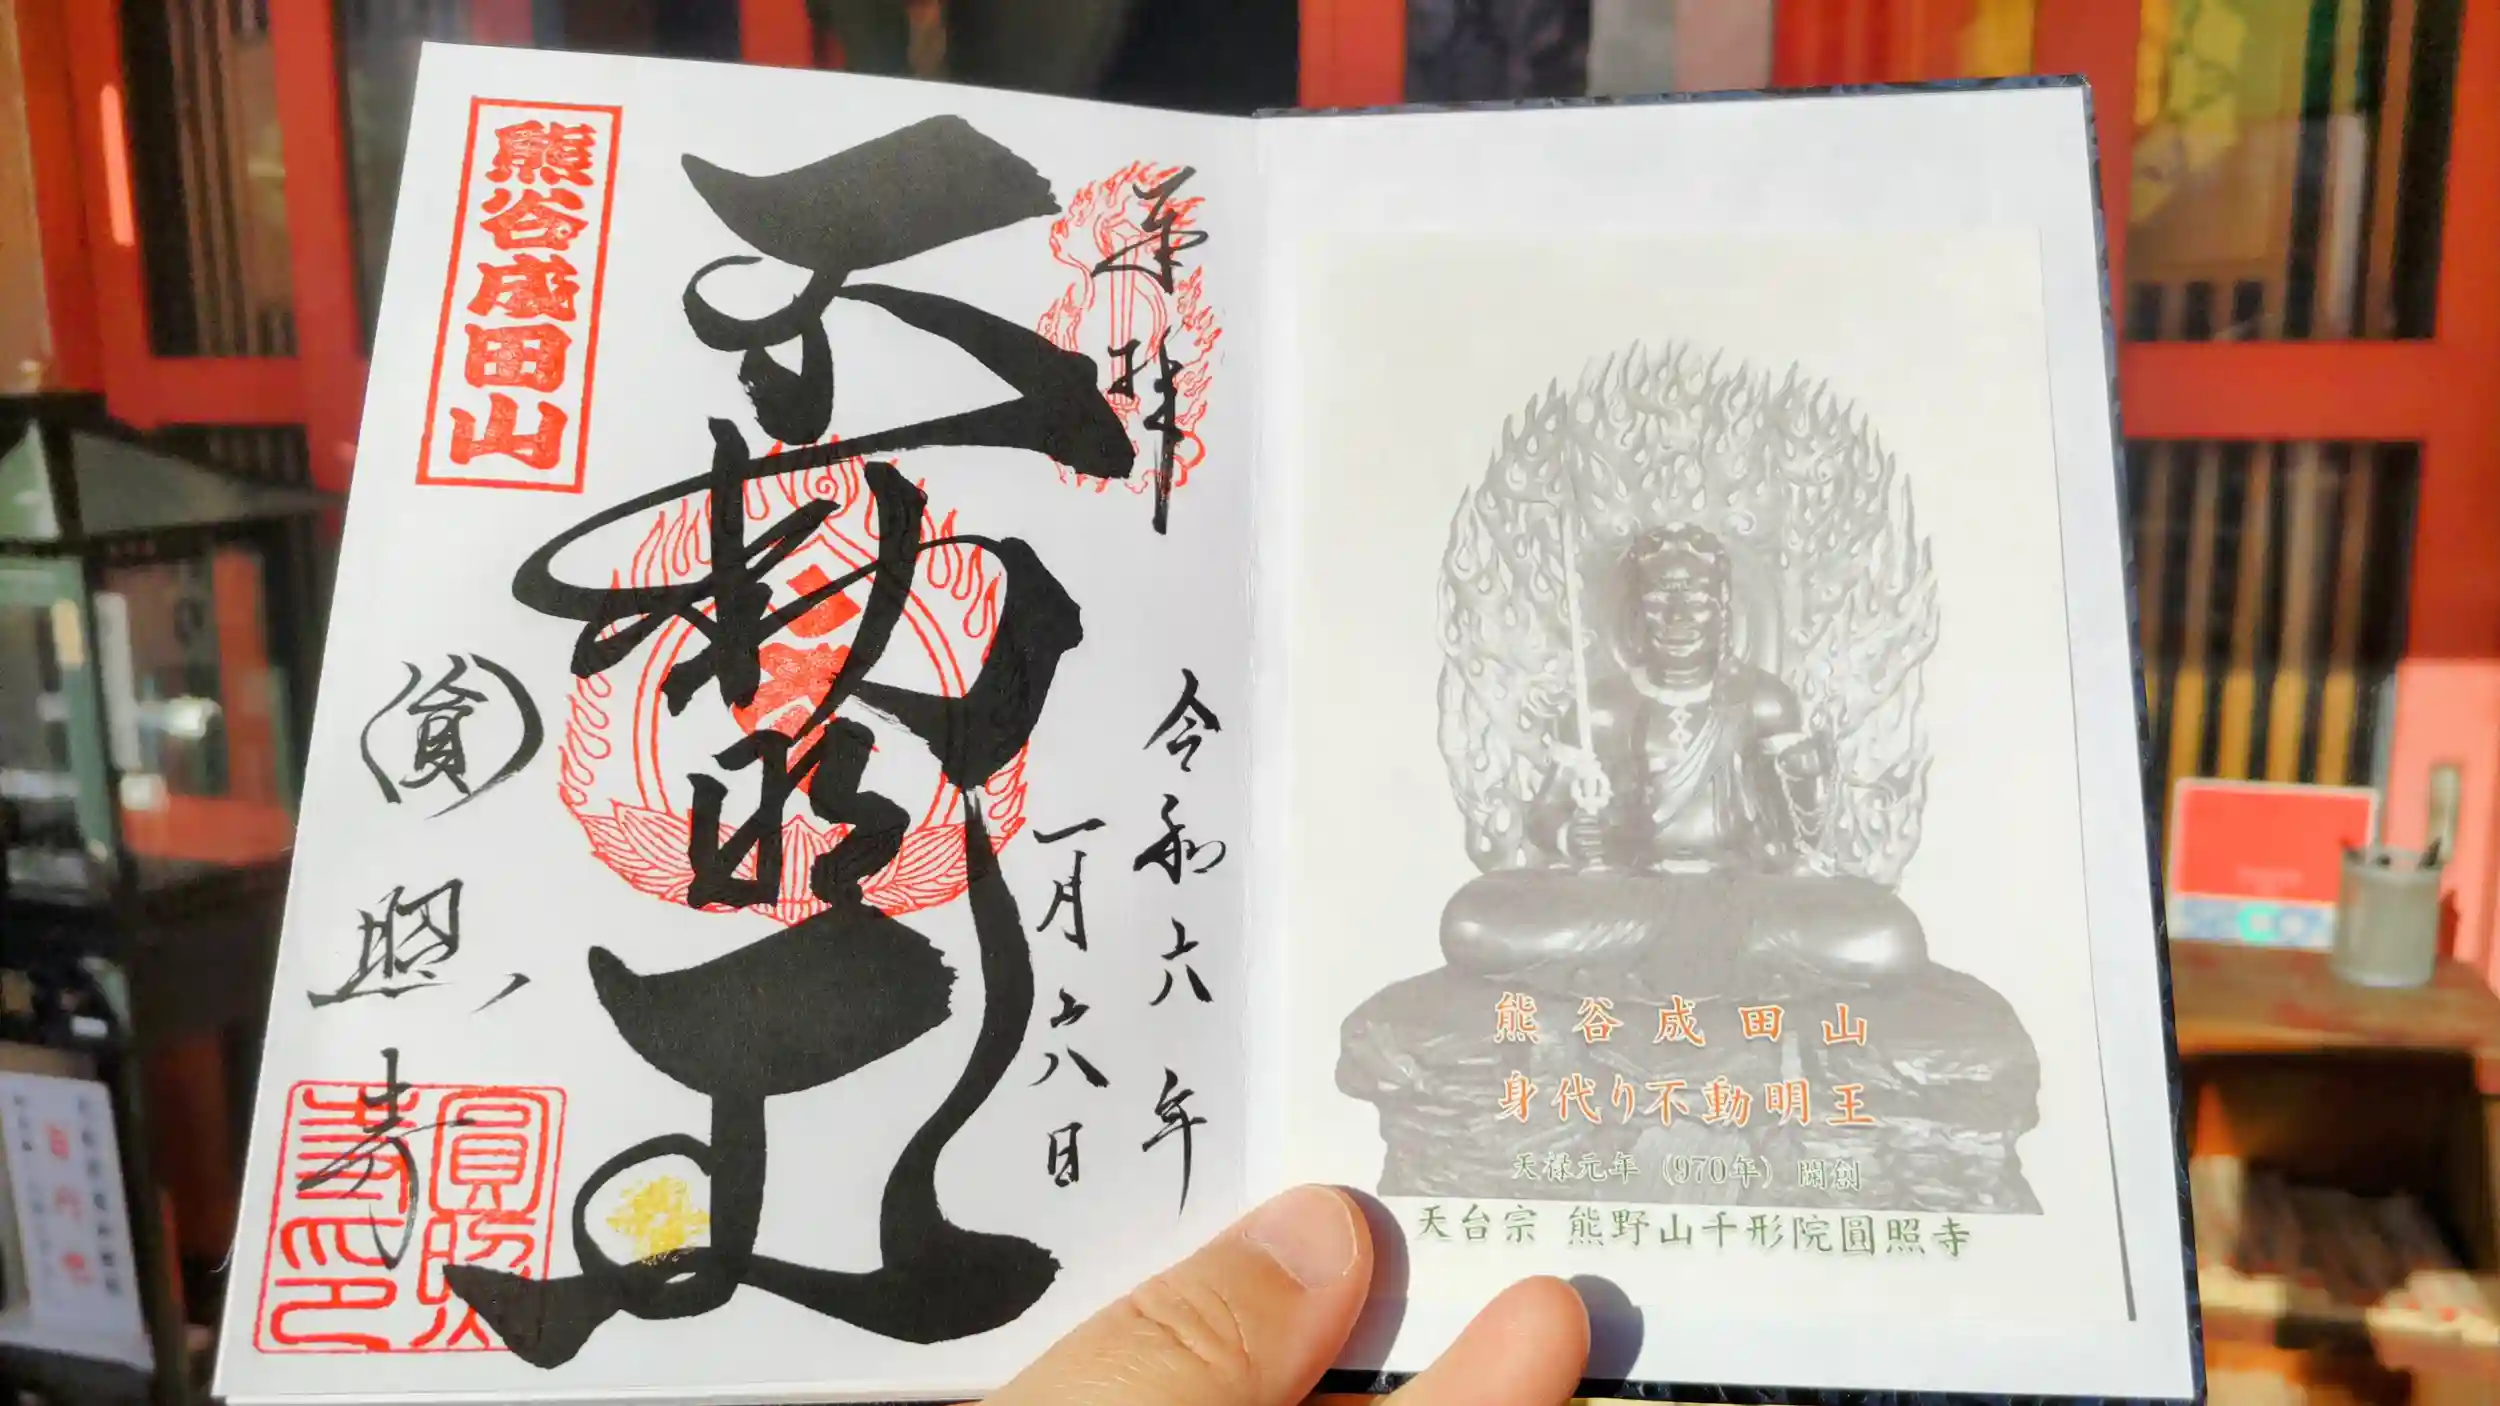 奉拝
令和六年
一月六八日
不動明王
熊谷成田山
圓照寺
圓照寺印
熊谷成田山
身代り不動明王
天禄元年 (970年) 開創
天台宗 熊野山千形院圓照寺